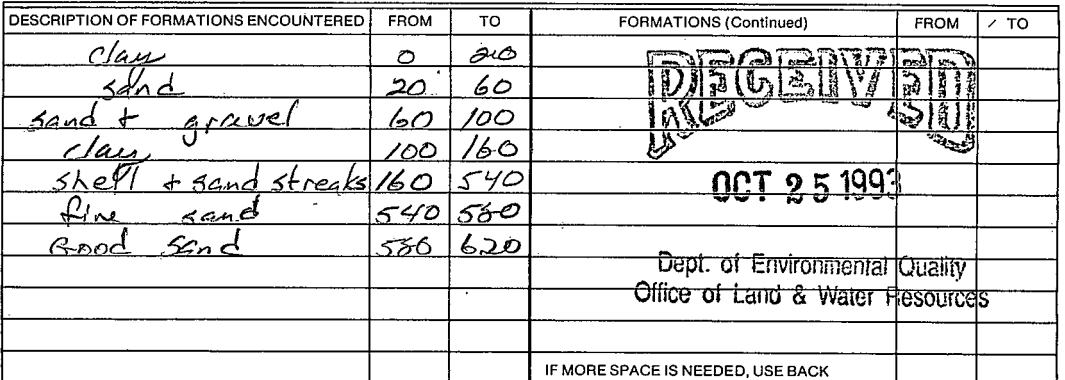 DESCRIPTION OF FORMATIONS ENCOUNTERED FROM TO FORMATIONS (Continued) FROM TO
clay 0 20
sand 20 60
sand + gravel 60 100
clay 100 160
shell + sand streaks 160 540
fine sand 540 580
Good sand 580 620
RECEIVED
OCT 25 1993
Dept. of Environmental Quality
Office of Land & Water Resources
IF MORE SPACE IS NEEDED, USE BACK